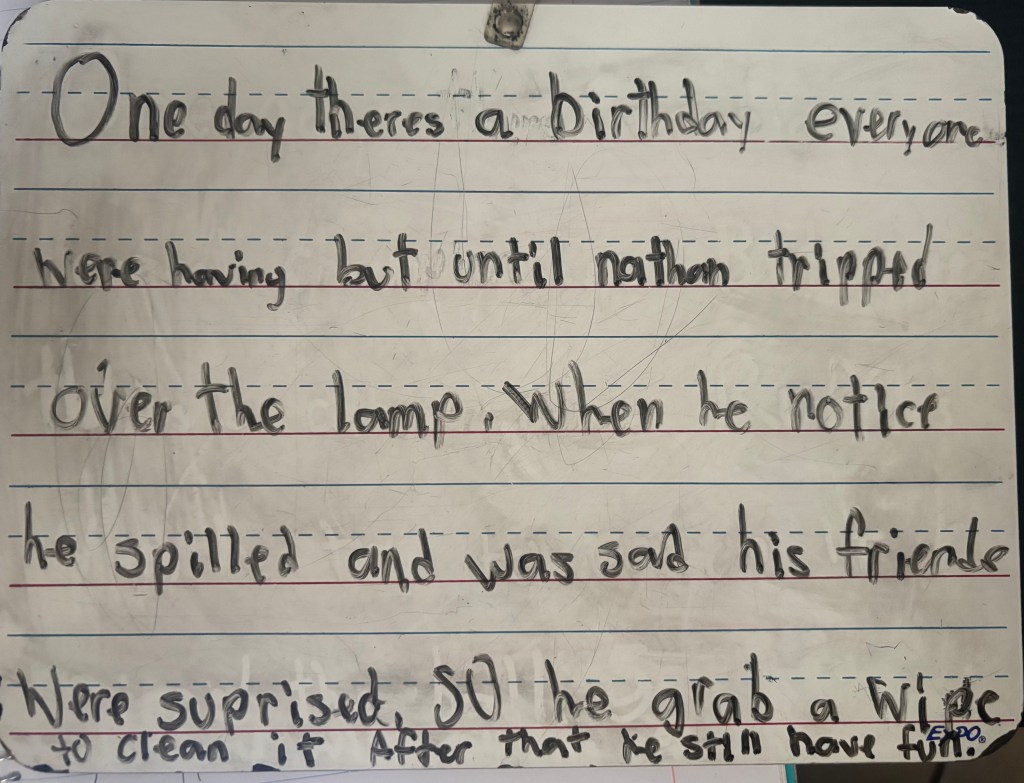 One day theres a birthday everyone
were having but until nathan tripped
over the lamp. When he notice
he spilled and was sad his friends
Were suprised. SO he grab a wipe
to clean it After that he still have fun.
EXPO®